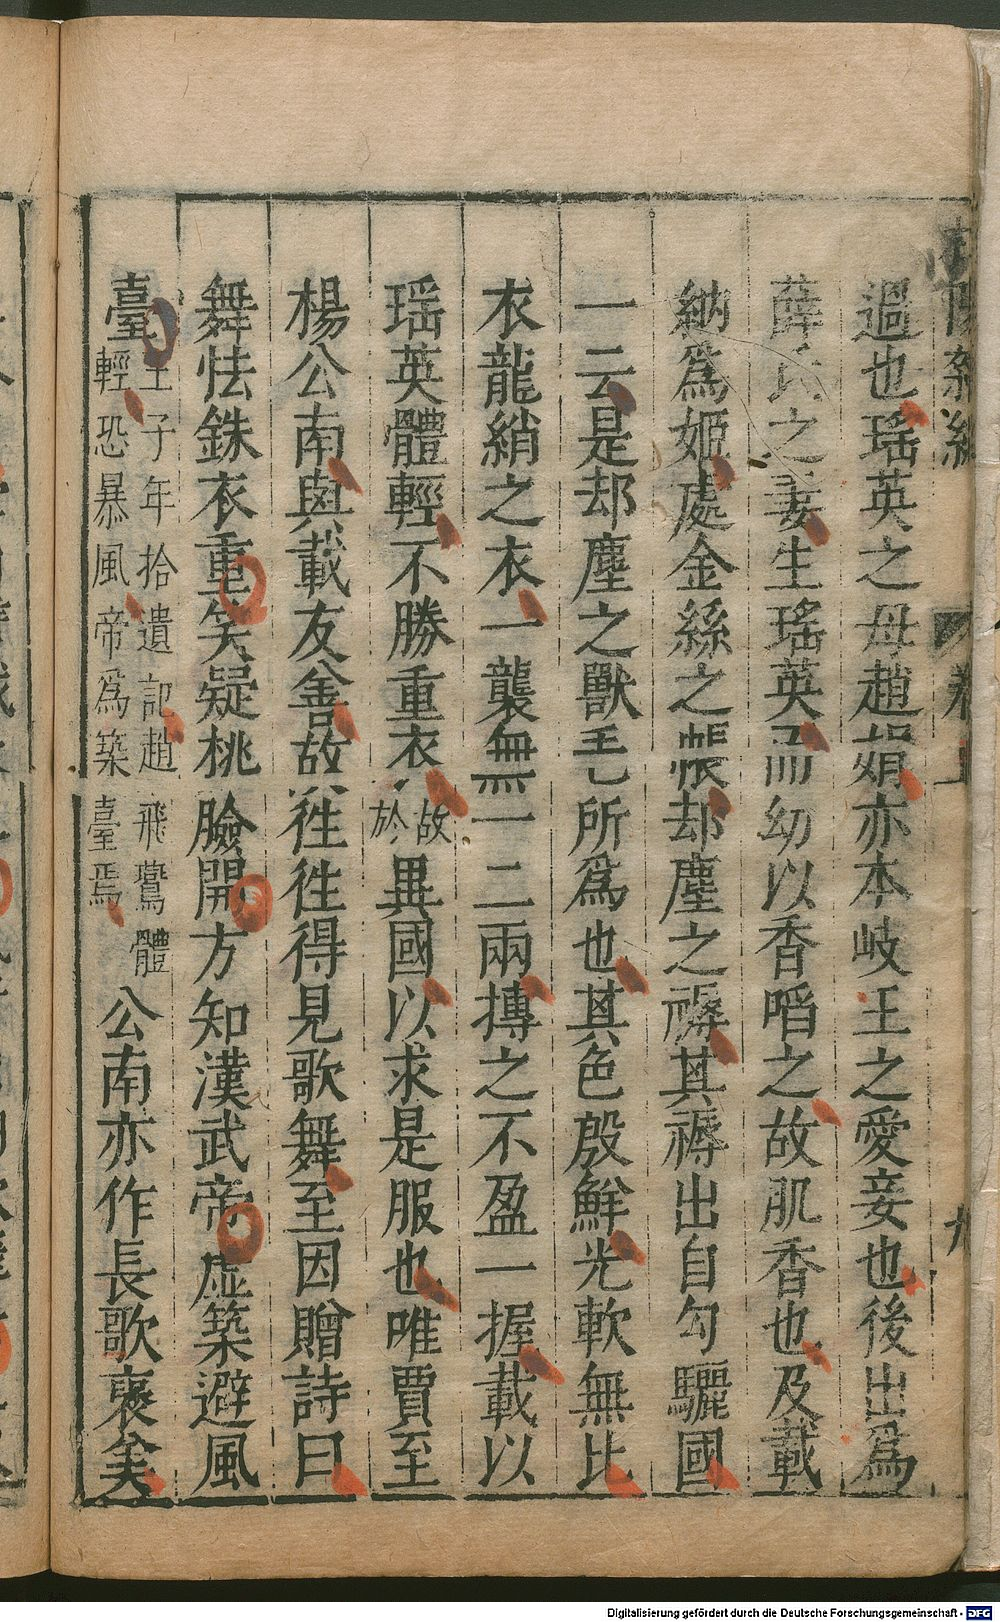 過也瑶英之母趙娟亦本岐王之愛妾也後出爲
薛氏之妻生瑤英而幼以香啗之故肌香也及載
納爲姬處金絲之帳却塵之褥其褥出自勾驪國
一云是却塵之獸毛所爲也其色殷鮮光軟無比
衣龍綃之衣一襲無一二兩摶之不盈一握載以
瑶英體輕不勝重衣故於異國以求是服也唯賈至
楊公南與載友善故徃徃得見歌舞至因贈詩曰
舞怯銖衣重笑疑桃臉開方知漢武帝虛築避風
臺王子年拾遺記趙飛鷰體輕恐暴風帝爲築臺焉公南亦作長歌褒美
Digitalisierung gefördert durch die Deutsche Forschungsgemeinschaft - DFG